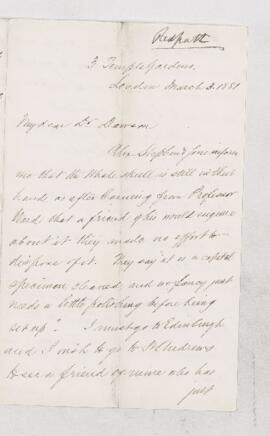 Redpath
3 Temple Gardens.
London March 3. 1881
My dear Dr Dawson
Alex Stephen & Sons inform
me that the Whale skull is still in their
hands as after hearing from Professor
Ward that a friend of his would inquire
about it they made no effort to
dispose of it. They say "it is a capital
specimen, cleaned, and we fancy just
needs a little polishing before being
set up". I must go to Edinburgh
and I wish to go to St Andrews
to see a friend of mine who has
just